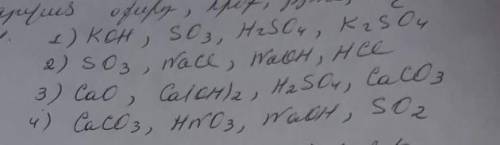 1) KOH, SO3, H2SO4, K2SO4
2) SO3, NaCl, NaOH, HCl
3) CaO, Ca(OH)2, H2SO4, CaCO3
4) CaCO3, HNO3, NaOH, SO2